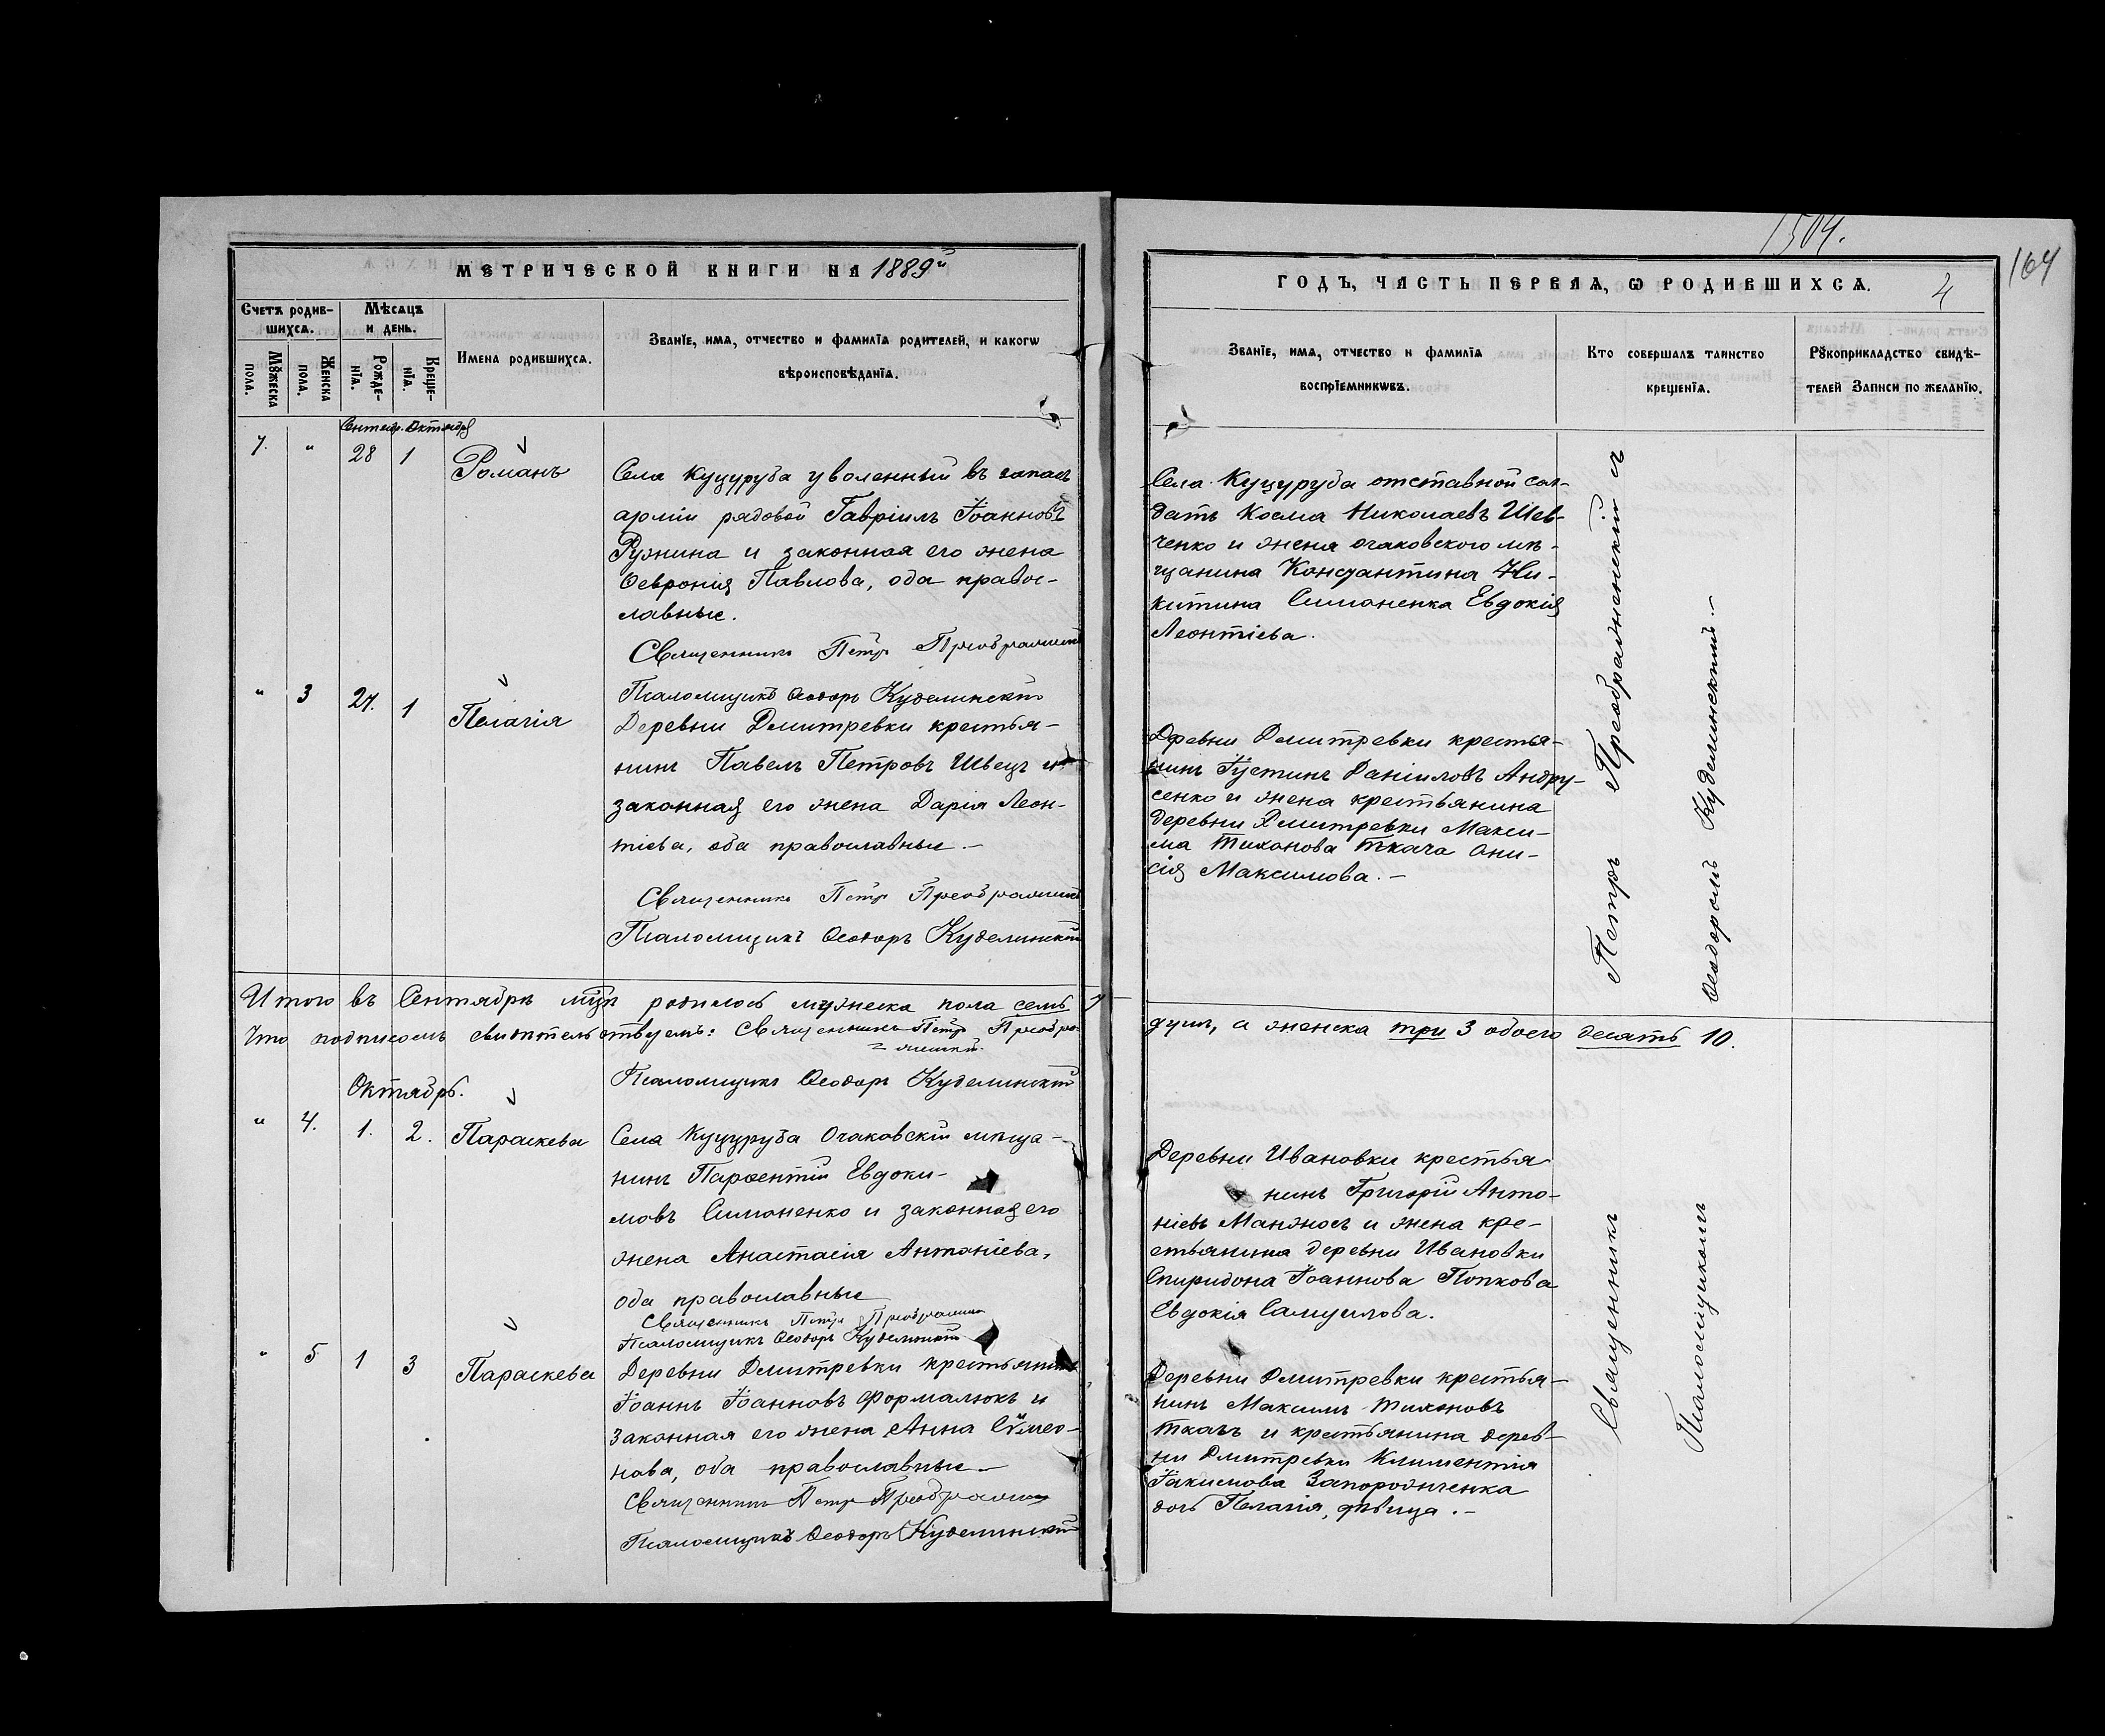 1504.
164
МЕТРИЧЕСКОЙ КНИГИ НА 1889й
ГОДЪ, ЧАСТЬ ПЕРВАЯ, Ѡ РОДИВШИХСѦ.
4
Счетъ родив-
шихсѧ.
Мѣсѧцъ
и день.
Мꙋжеска
пола.
Женска
пола.
Рожде-
нїѧ.
Креще-
нїѧ.
Имена родившихсѧ.
Званїе, имѧ, отчество и фамилїѧ родителей, и какогѡ
вѣроисповѣданїѧ.
Званїе, имѧ, отчество и фамилїѧ
воспрїемникѡвъ.
Кто совершалъ таинство
крещенїѧ.
Рꙋкоприкладство свидѣ-
телей записи по желанїю.
Сентябр. Октября
7. " 28 1 Романъ
Села Куцуруба уволенный въ запасъ
арміи рядовой Гавріилъ Іоанновъ
Ружина и законная его жена
Ѳевронія Павлова, оба правос-
лавные.
Священникъ Петръ Преображенскій
Псаломщикъ Ѳеодоръ Куделинскій
Села Куцуруба отставной сол-
датъ Косма Николаевъ Шев-
ченко и жена очаковского мѣ-
щанина Константина Ни-
китина Симоненка Евдокія
Леонтіева.
" 3 27. 1 Пелагія
Деревни Дмитревки крестья-
нинъ Павелъ Петровъ Швецъ и
законная его жена Дарія Леон-
тіева, оба православные.-
Священникъ Петръ Преображенскій
Псаломщикъ Ѳеодоръ Куделинскій
Деревни Дмитревки крестья-
нинъ Іустинъ Даніиловъ Андру-
сенко и жена крестьянина
деревни Дмитревки Макси-
ма Тихонова Ткача Они-
сія Максимова.-
Итого въ Сентябрѣ мцѣ родилось мужеска пола семь 7
душъ, а женска три 3 обоего десять 10.
Что подписомъ свидѣтельствуемъ: Священникъ Петръ Преобра-
женскій
Псаломщикъ Ѳеодоръ Куделинскій
Октябрь.
" 4. 1. 2. Параскева
Села Куцуруба Очаковскій мѣща-
нинъ Парѳентій Евдоки-
мовъ Симоненко и законная его
жена Анастасія Антоніева,
оба православные
Священникъ Петръ Преображенскій
Псаломщикъ Ѳеодоръ Куделинскій
Деревни Ивановки крестья
нинъ Григорій Анто-
ніевъ Манжосъ и жена кре-
стьянина деревни Ивановки
Спиридона Іоаннова Попкова
Евдокія Самуилова.
" 5 1 3 Параскева
Деревни Дмитревки крестьянинъ
Іоаннъ Іоанновъ Формалюкъ и
законная его жена Анна Сѵмео-
нова, оба православные.-
Священникъ Петръ Преображенскій
Псаломщикъ Ѳеодоръ Куделинскій
Деревни Дмитревки крестья-
нинъ Максимъ Тихоновъ
Ткачъ и крестьянина дерев-
ни Дмитревки Климентія
Іакимова Запорожченка
дочь Пелагія, дѣвица.-
Священникъ Петръ Преображенскій съ
Псаломщикомъ Ѳеодоромъ Куделинскимъ.-